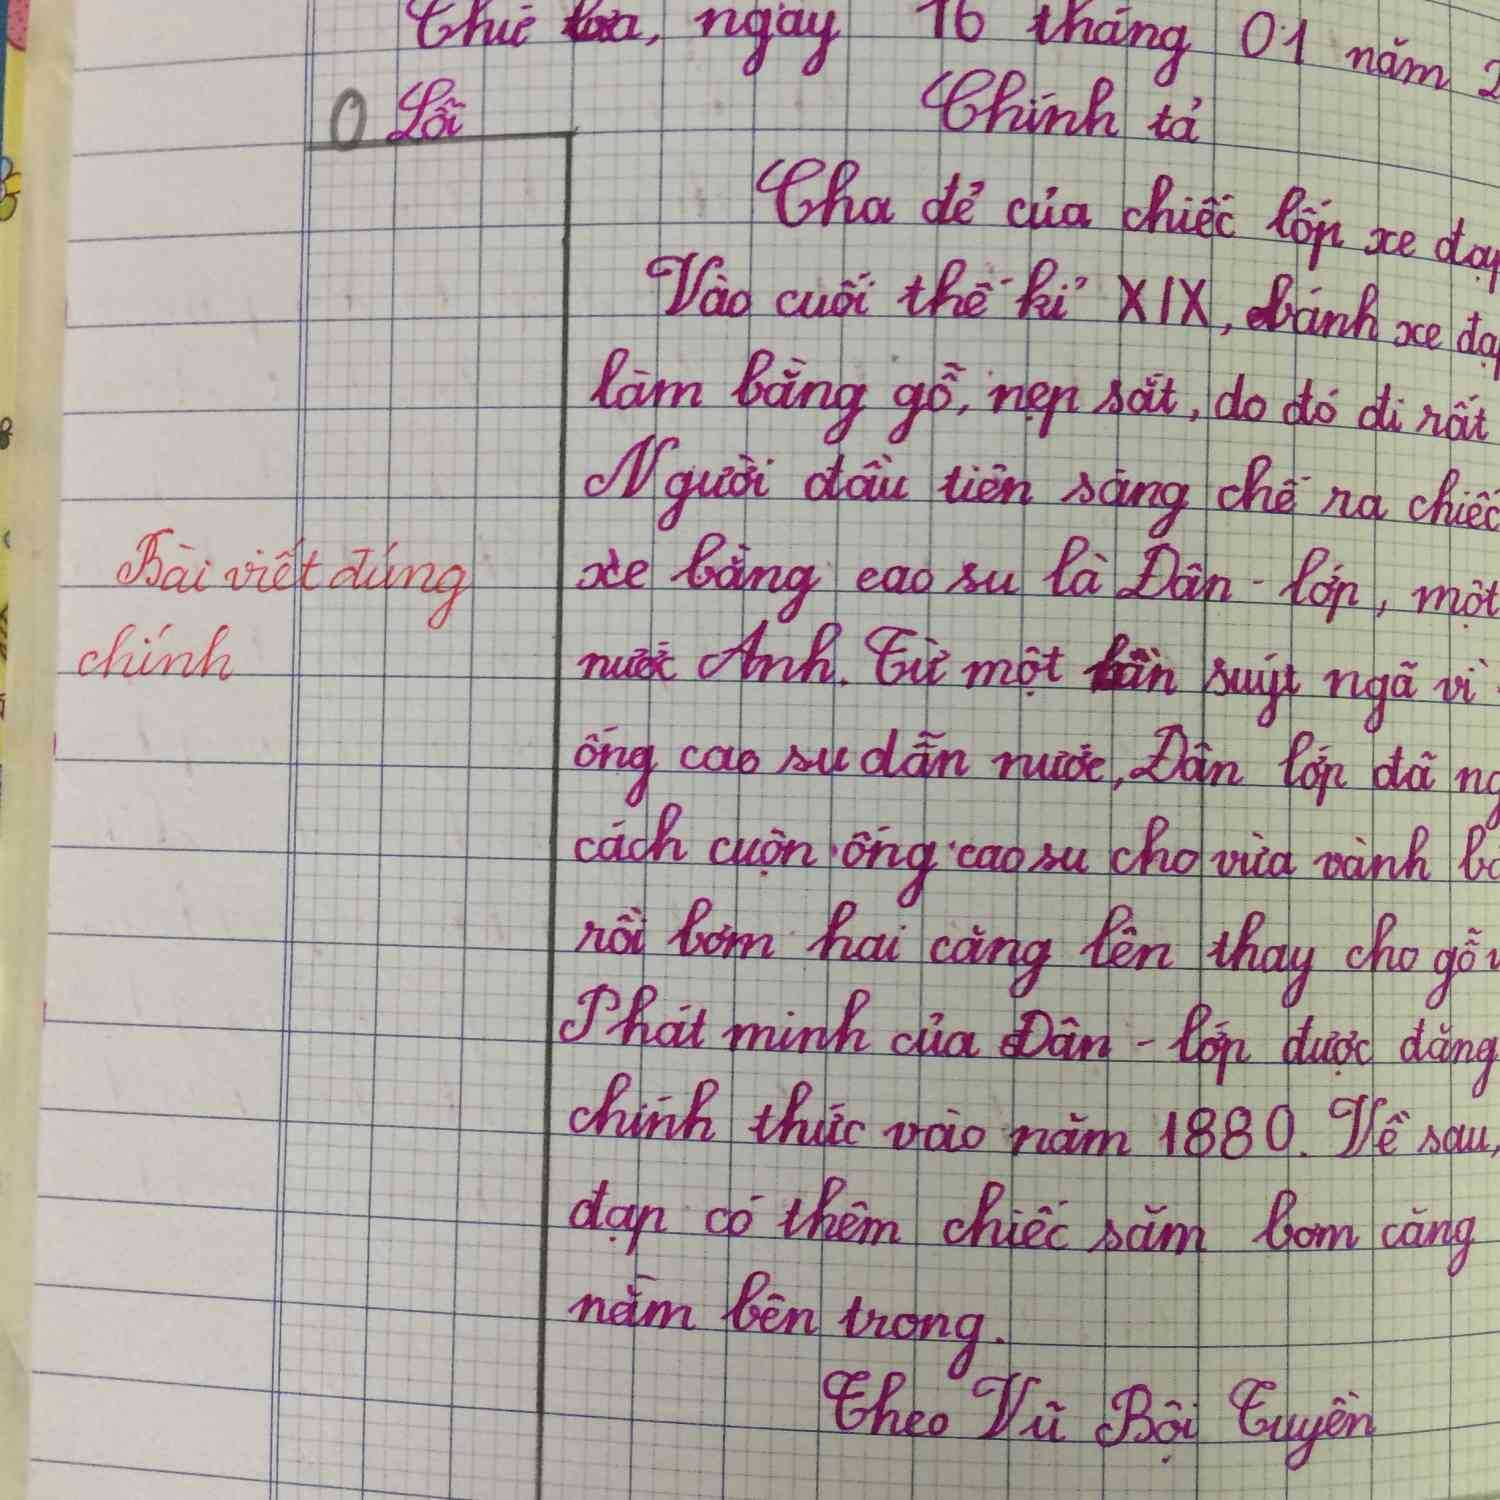 Thứ ba, ngày 16 tháng 01 năm
0 Lỗi
Chính tả
Cha đẻ của chiếc lốp xe đạp
Vào cuối thế kỉ XIX, bánh xe đạ
làm bằng gỗ, nẹp sắt, do đó đi rất
Người đầu tiên sáng chế ra chiếc
xe bằng cao su là Dân - lớp, một
Bài viết đúng
nước Anh. Từ một lần suýt ngã vì
chính
ống cao su dẫn nước, Dân lớp đã ng
cách cuộn ống cao su cho vừa vành bá
rồi bơm hai căng lên thay cho gỗ v
Phát minh của Dân - lớp được đăng
chính thức vào năm 1880. Về sau,
đạp có thêm chiếc săm bơm căng
nằm bên trong.
Theo Vũ Bội Tuyền